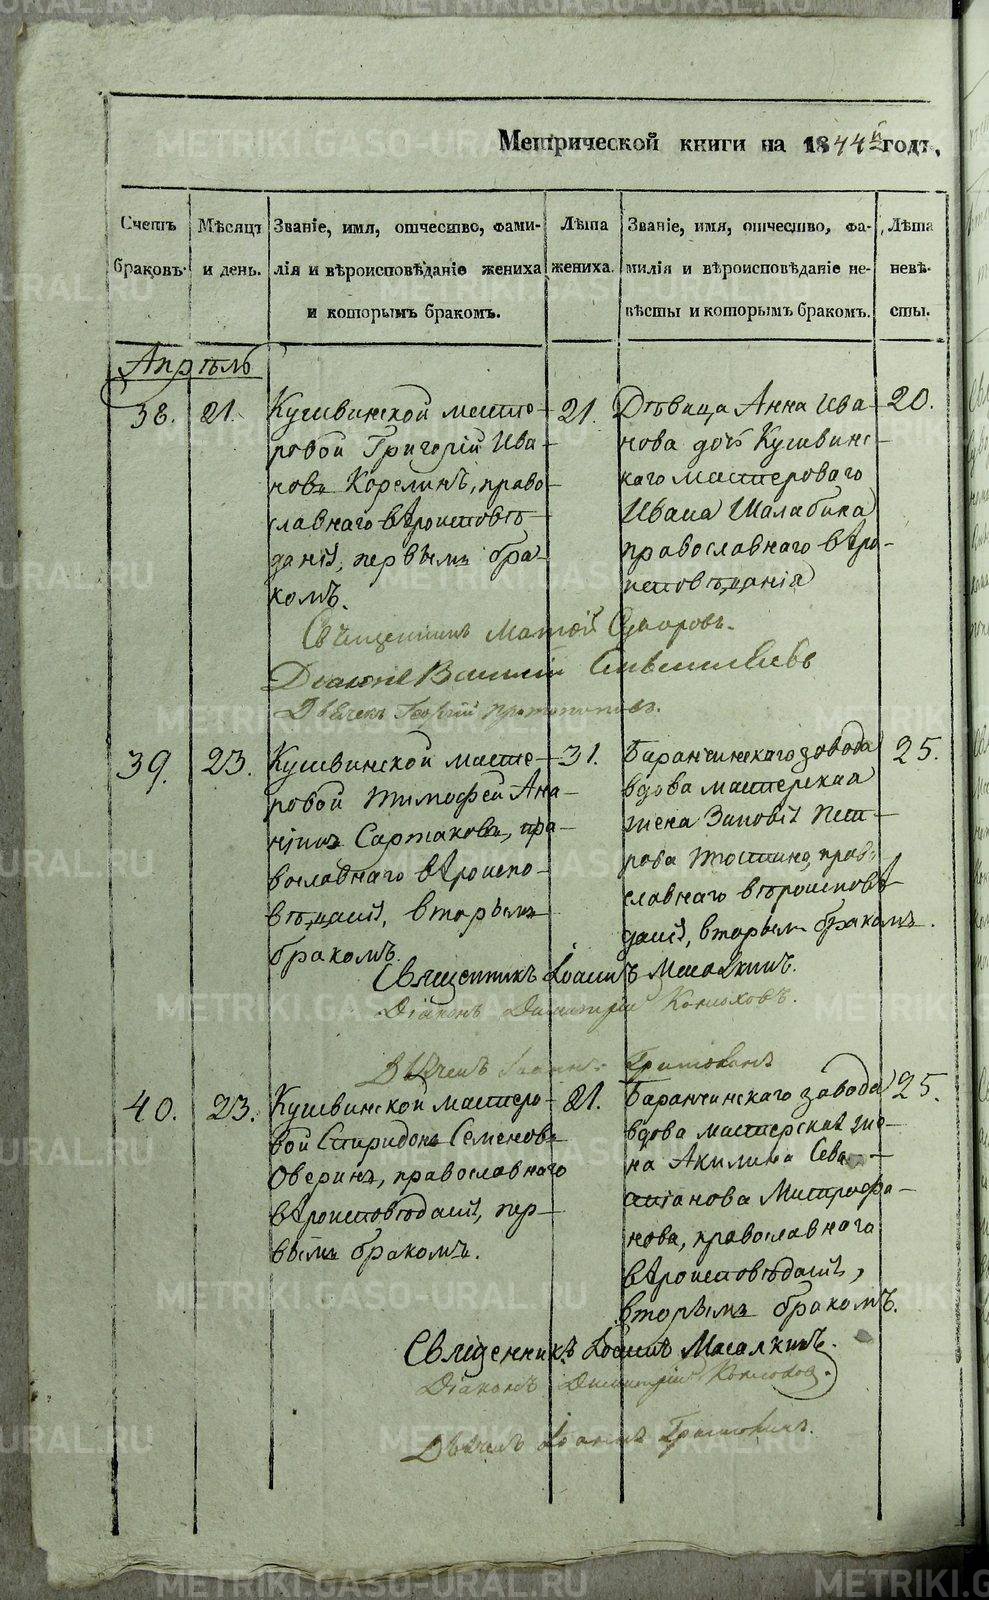 Метрической книги на 1844й годъ,
Счетъ браковъ.
Мѣсяцъ и день.
Званіе, имя, отчество, фамилія и вѣроисповѣданіе жениха и которымъ бракомъ.
Лѣта жениха.
Званіе, имя, отчество, фамилія и вѣроисповѣданіе невѣсты и которымъ бракомъ.
Лѣта невѣсты.
Апрѣль
38.
21.
Кушвинской масте-
ровой Григорій Ива-
новъ Корелинъ, право-
славнаго вѣроисповѣ-
данія, первымъ бра-
комъ.
21.
Дѣвица Анна Ива-
нова дочь Кушвинс-
каго мастероваго
Ивана Шалабина
православнаго вѣро-
исповѣданія
20.
Священникъ Матѳій
Діаконъ Василій
Дьячекъ Георгій Протопоповъ.
39.
23.
Кушвинской масте-
ровой Тимофей Ана-
ніинъ Сартаковъ, пра-
вославнаго вѣроиспо-
вѣданія, вторымъ
бракомъ.
31.
Баранчинскаго завода
вдова мастерская
жена Зиновія Пет-
рова правo-
славнаго вѣроисповѣ-
данія, вторымъ бракомъ.
25.
Священникъ Іоаннъ Масалкинъ.
Діаконъ Димитрій Конюховъ.
Дьячекъ Іоаннъ
40.
23.
Кушвинской мастеро-
вой Спиридонъ Семеновъ
Оверинъ, православнаго
вѣроисповѣданія, пер-
вымъ бракомъ.
21.
Баранчинскаго завода
вдова мастерская же-
на Акилина Сева-
стіанова Митрофа-
нова, православнаго
вѣроисповѣданія,
вторымъ бракомъ.
25.
Священникъ Іоаннъ Масалкинъ.
Діаконъ Димитрій Конюховъ.
Дьячекъ Іоаннъ
METRIKI.GASO-URAL.RU